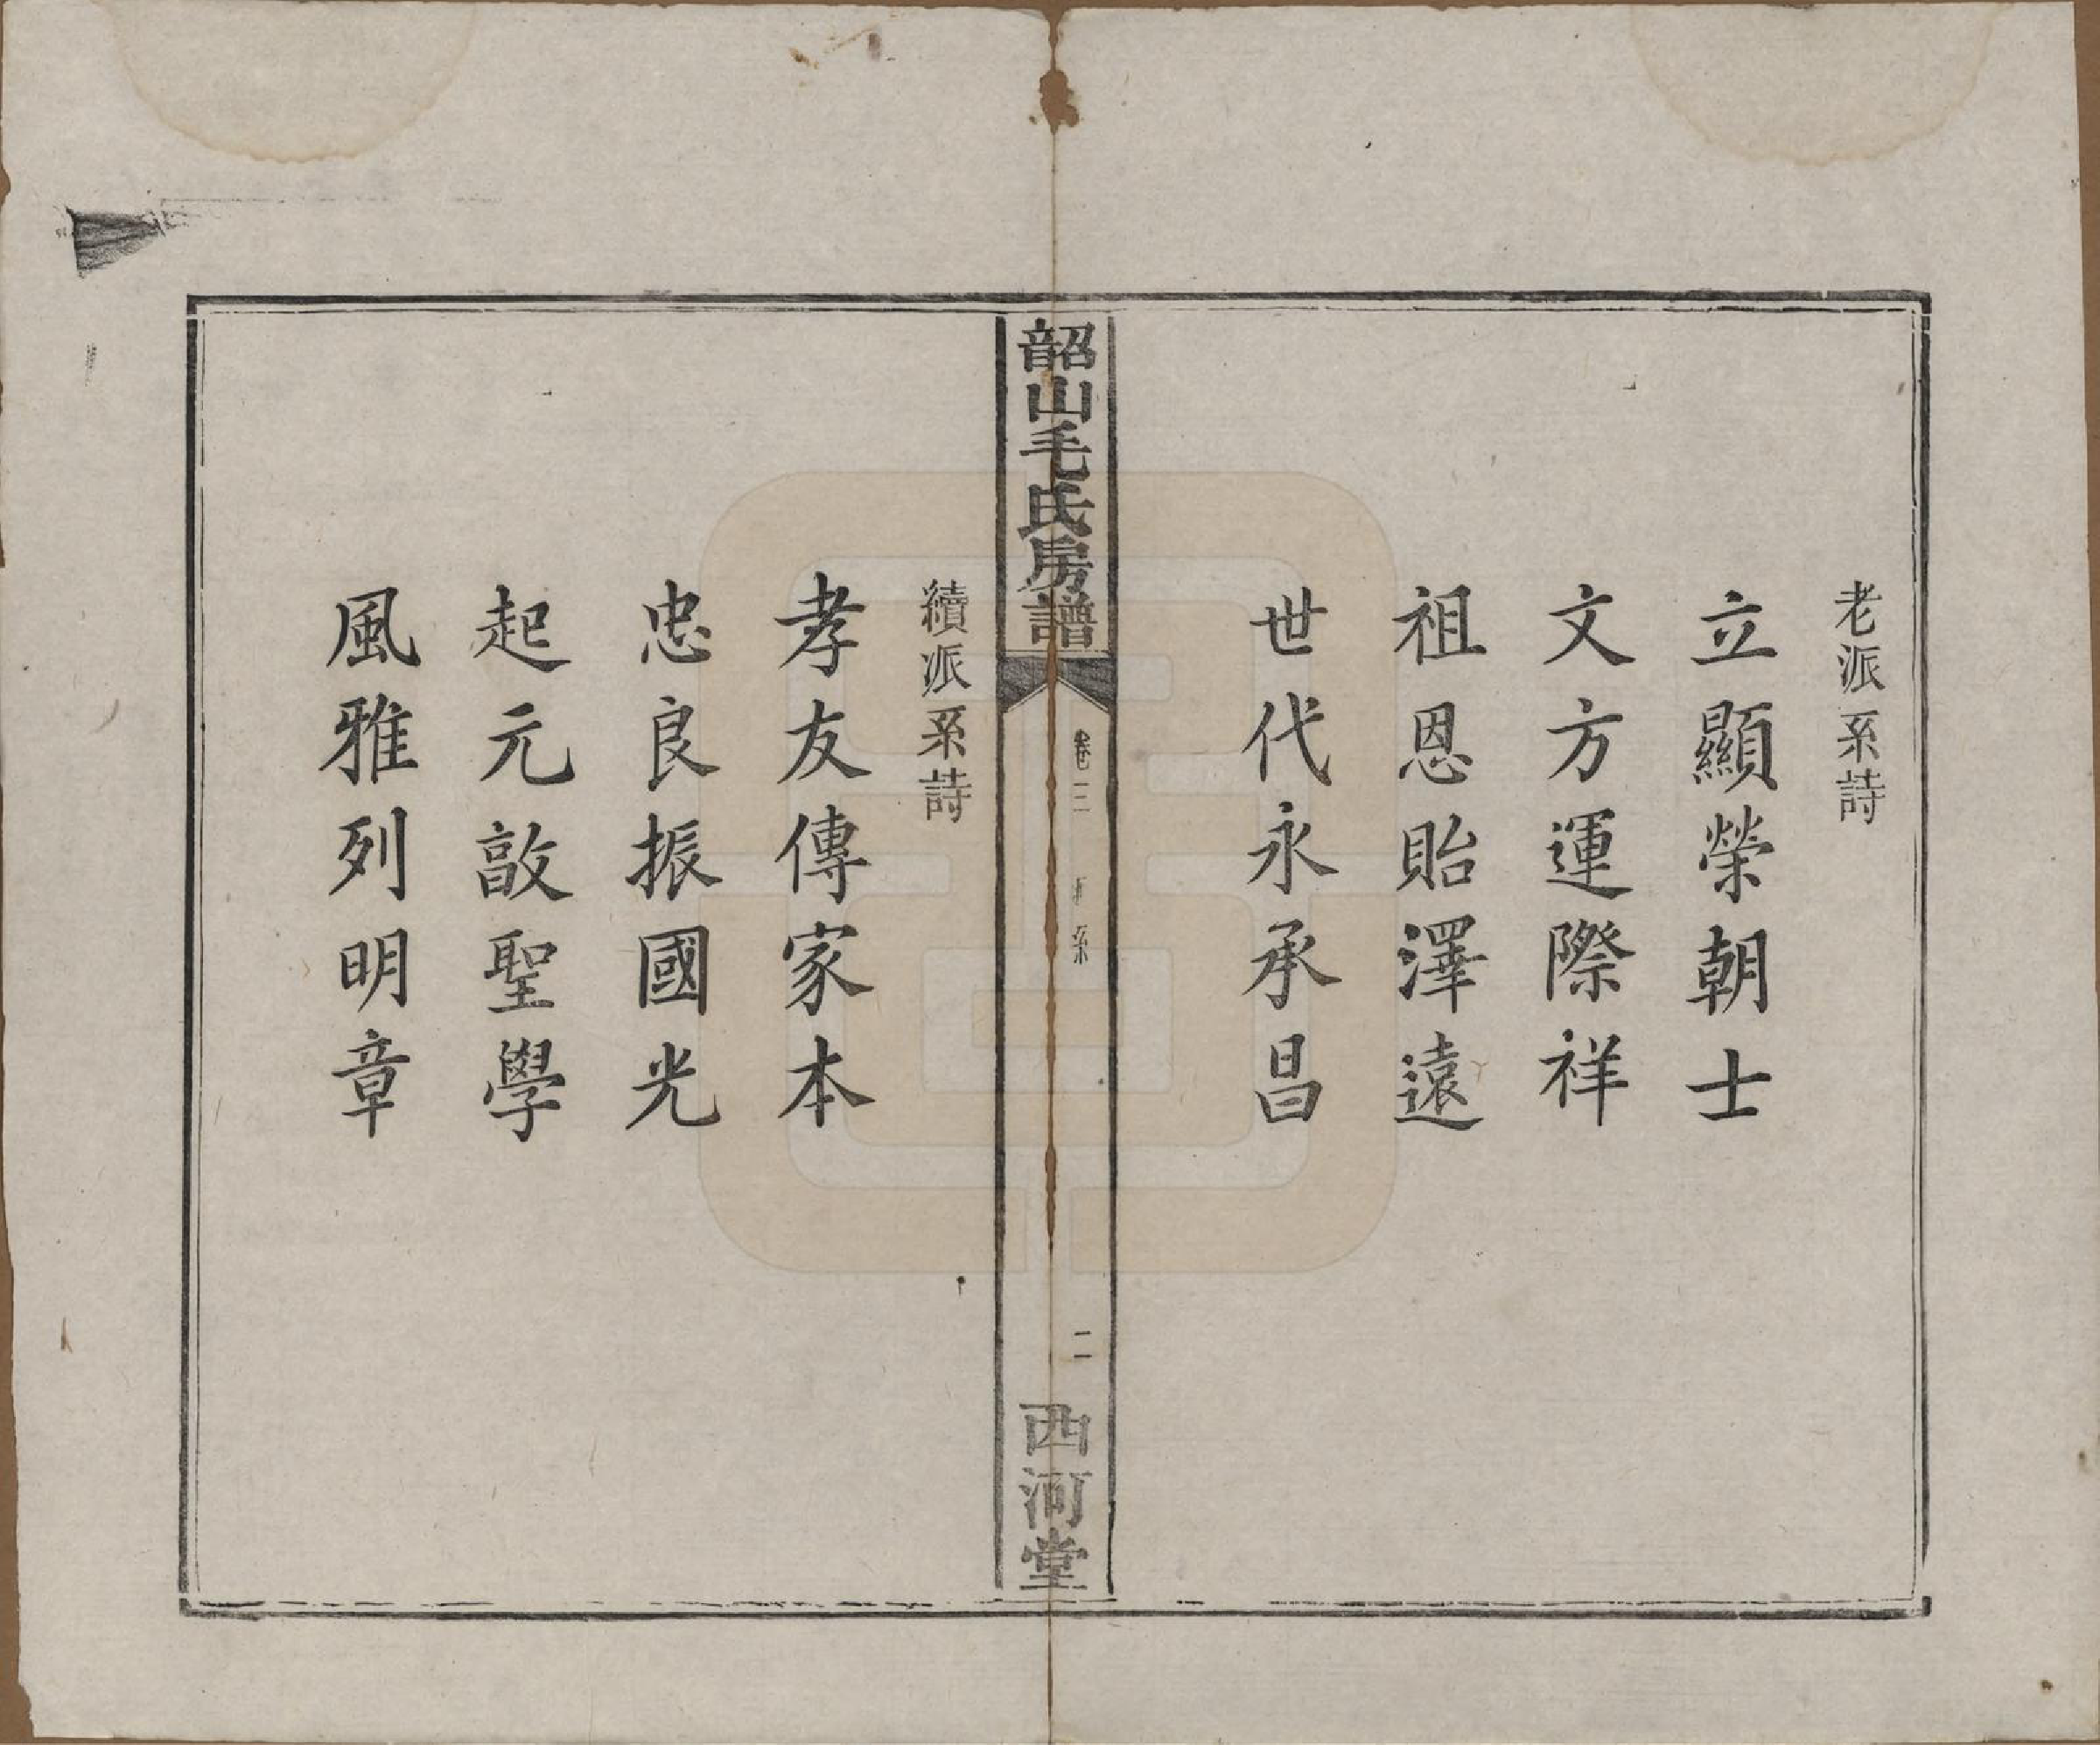 老派系詩
立顯榮朝士
文方運際祥
祖恩貽澤遠
世代永承昌
韶山毛氏房譜
卷三
系
二
西河堂
續派系詩
孝友傳家本
忠良振國光
起元敨聖學
風雅列明章